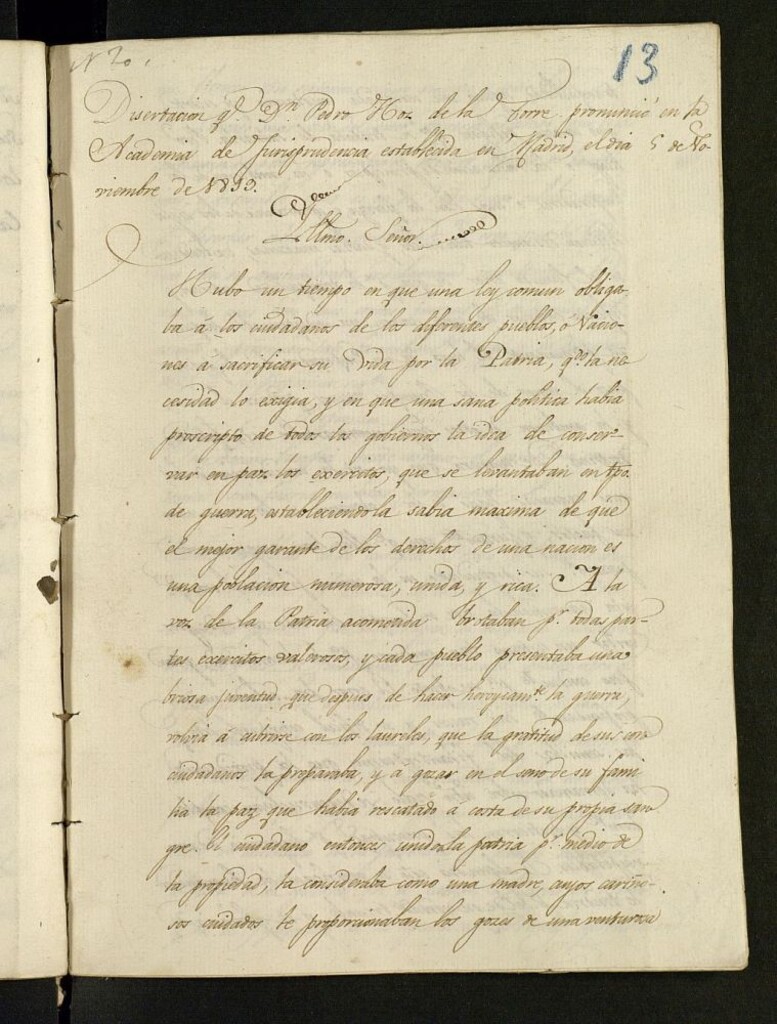 Nº 20.
13
Disertacion q.e D.n Pedro Hoz de la Torre pronunció en la
Academia de Jurisprudencia establecida en Madrid, el dia 5 de No-
viembre de 1813.
Yllmo. Señor.
Hubo un tiempo en que una ley comun obliga-
ba á los ciudadanos de los diferentes pueblos, ó Nacio-
nes a sacrificar su vida por la Patria, q.do la ne-
cesidad lo exigia, y en que una sana politica habia
proscripto de todos los gobiernos la idea de conser-
var en paz los exercitos, que se levantaban en tpo.
de guerra, estableciendo la sabia maxima de que
el mejor garante de los derechos de una nacion es
una poblacion numerosa, unida, y rica. A la
voz de la Patria acometida brotaban p.r todas par-
tes exercitos valerosos, y cada pueblo presentaba una
briosa juventud que despues de hacer heroycam.te la guerra,
volvia á cubrirse con los laureles, que la gratitud de sus con-
ciudadanos la preparaba, y a gozar en el seno de su fami-
lia la paz que habia rescatado á costa de su propia san-
gre. El ciudadano entonces unido a la patria p.r medio de
la propiedad, la consideraba como una madre, cuyos cariño-
sos cuidados le proporcionaban los gozes de una venturosa